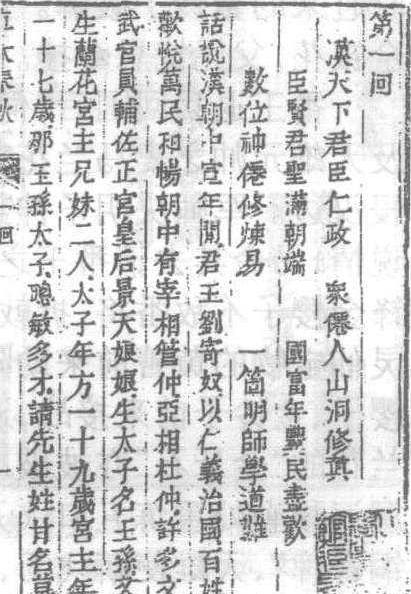 第一回
漢天下君臣仁政　衆僊人山洞修眞
臣賢君聖滿朝端　國富年豐民盡歡
數位神僊修煉易　一箇明師學道難
話說漢朝中宣年間君王劉寄奴以仁義治國百姓
歡悅萬民和暢朝中有宰相管仲亞相杜仲許多文
武官員輔佐正宮皇后景天娘娘生太子名王孫又
生蘭花宮主兄妹二人太子年方一十九歲宮主年
一十七歲那王孫太子聰敏多才請先生姓甘名草
草木春秋　一回　一